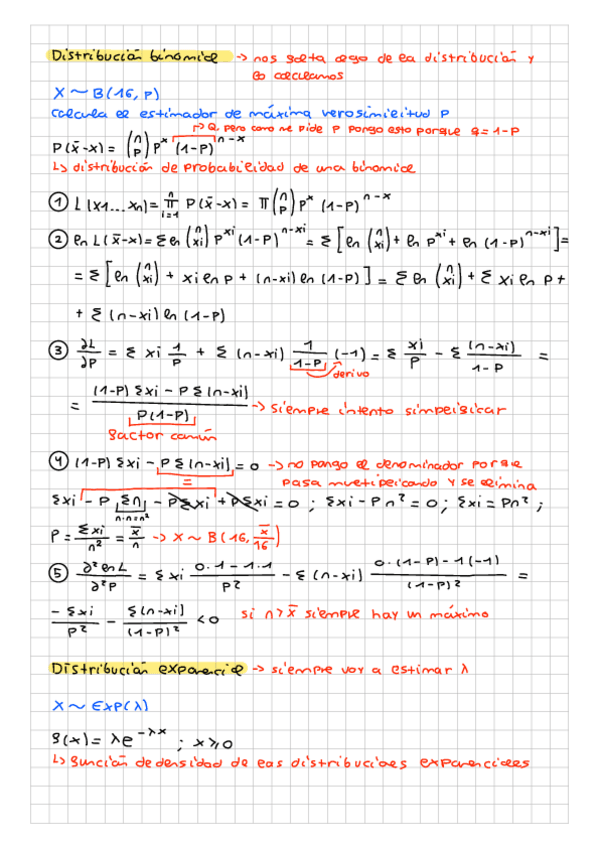 Distribución binomial → nos falta algo de la distribución y
lo calculamos
X ~ B(16, p)
calcula el estimador de máxima verosimilitud P
↱ Q, pero como me pide P pongo esto porque q = 1-P
P(x̄-x) = (n P) P^x (1-P)^n-x
↳ distribución de probabilidad de una binomial
① L(x1...xn) = π i=1 n P(x̄-x) = π (n P) P^x (1-P)^n-x
② ln L(x̄-x) = Σ ln (n xi) P^xi (1-P)^n-xi = Σ [ln (n xi) + ln P^xi + ln (1-P)^n-xi] =
= Σ [ln (n xi) + xi ln P + (n-xi) ln (1-P)] = Σ ln (n xi) + Σ xi ln P +
+ Σ (n-xi) ln (1-P)
③ ∂L/∂P = Σ xi 1/P + Σ (n-xi) 1/(1-P) (-1) = Σ xi/P - Σ (n-xi)/(1-P) =
derivo
= ((1-P) Σxi - P Σ(n-xi))/(P(1-P)) → siempre intento simplificar
factor común
④ (1-P) Σxi - P Σ(n-xi) = 0 → no pongo el denominador porque
= pasa multiplicando y se elimina
Σxi - P Σn - PΣxi + PΣxi = 0 ; Σxi - Pn² = 0 ; Σxi = Pn² ;
n·n=n²
P = Σxi/n² = x̄/n → X ~ B(16, x̄/16)
⑤ ∂² ln L/∂²P = Σxi (0·1-1·1)/P² - Σ(n-xi) (0·(1-P)-1(-1))/(1-P)² =
-Σxi/P² - Σ(n-xi)/(1-P)² < 0 si n > x̄ siempre hay un máximo
Distribución exponencial → siempre voy a estimar λ
X ~ EXP(λ)
f(x) = λe^-λx ; x ≥ 0
↳ función de densidad de las distribuciones exponenciales